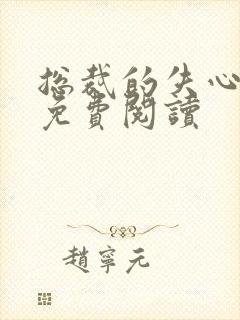 总裁的失心
免費閱讀
趙寧元